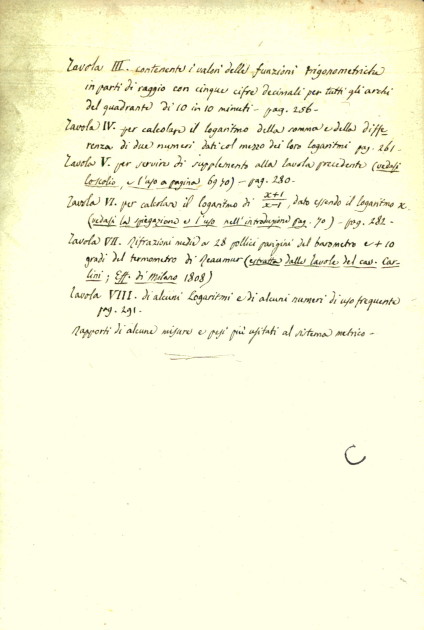 Tavola III. contenente i valori delle funzioni trigonometriche
in parti di raggio con cinque cifre decimali per tutti gli archi
del quadrante di 10 in 10 minuti - pag. 256 -
Tavola IV. per calcolare il logaritmo della somma e della diffe
renza di due numeri dati col mezzo dei loro logaritmi pag. 261 -
Tavola V. per servire di supplemento alla tavola precedente (vedasi
lo scolio, e l'uso a pagina 69 70) - pag. 280 -
Tavola VI. per calcolare il logaritmo di x+1/x-1, dato essendo il logaritmo x.
(vedasi la spiegazione e l'uso nell'introduzione pag. 70) - pag. 282 -
Tavola VII. Rifrazioni medie a 28 pollici parigini del barometro e + 10
gradi del termometro di Reaumur (estratta dalle tavole del cav. Car-
lini; Eff. di Milano 1808)
Tavola VIII. di alcuni Logaritmi e di alcuni numeri di uso frequente
pag. 291 -
Rapporti di alcune misure e pesi più usitati al sistema metrico -